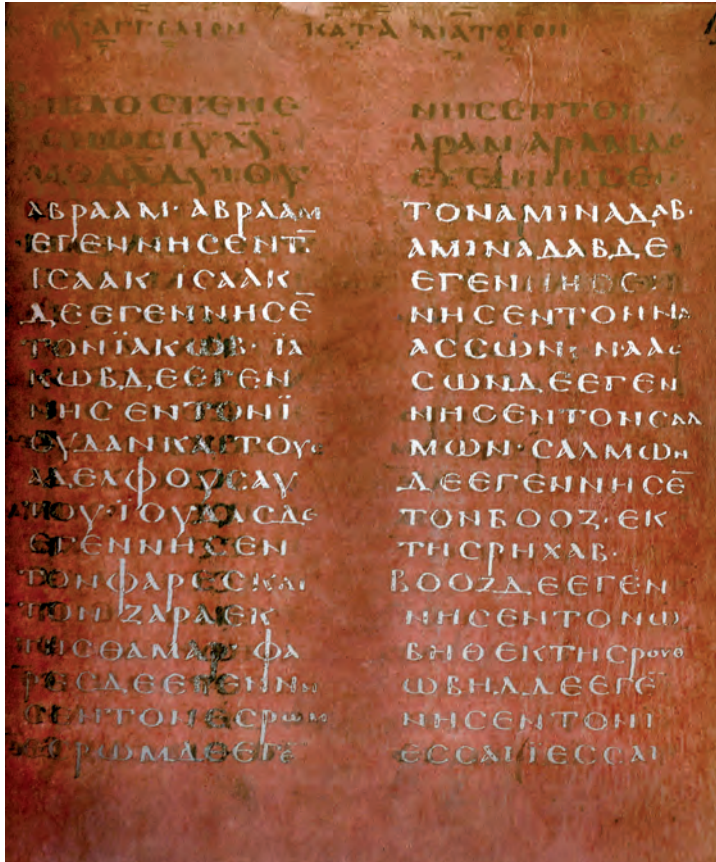 ΚΑΤΑ ΜΑΤΘΕΟΝ
ΒΙΒΛΟϹΓΕΝΕ
ϹΕΩϹΙ̅Υ̅Χ̅Υ̅
ΑΒΡΑΑΜ· ΑΒΡΑΑΜ
ΕΓΕΝΝΗϹΕΝΤ̅
ΙϹΑΑΚ ΙϹΑΑΚ
ΔΕΕΓΕΝΝΗϹΕ̅
ΤΟΝΪΑΚΩΒ· ΪΑ
ΚΩΒΔΕΕΓΕΝ
ΝΗϹΕΝΤΟΝΪ
ΟΥΔΑΝΚΑΙΤΟΥϹ
ΑΔΕΛΦΟΥϹΑΥ
ΤΟΥ·ΪΟΥΔΑϹΔΕ
ΕΓΕΝΝΗϹΕΝ
ΤΟΝΦΑΡΕϹΚΑΙ
ΤΟΝΖΑΡΑΕΚ
ΤΗϹΘΑΜΑΡ· ΦΑ
ΡΕϹΔΕΕΓΕΝΝΗ
ϹΕΝΤΟΝΕϹΡΩΜ
ΕϹΡΩΜΔΕΕΓΕ̅
ΝΗϹΕΝΤΟΝ
ΑΡΑΜ ΑΡΑΜΔΕ
ΕΓΕΝΝΗϹΕ
ΤΟΝΑΜΙΝΑΔΑΒ·
ΑΜΙΝΑΔΑΒΔΕ
ΕΓΕΝ
ΝΗϹΕΝΤΟΝΝΑ
ΑϹϹΩΝ· ΝΑΑϹ
ϹΩΝΔΕΕΓΕΝ
ΝΗϹΕΝΤΟΝϹΑΛ
ΜΩΝ· ϹΑΛΜΩΝ
ΔΕΕΓΕΝΝΗϹΕ̅
ΤΟΝΒΟΟΖ· ΕΚ
ΤΗϹΡΗΧΑΒ·
ΒΟΟΖΔΕΕΓΕΝ
ΝΗϹΕΝΤΟΝΩ
ΒΗΘΕΚΤΗϹΡΟΥΘ
ΩΒΗΔΔΕΕΓΕ̅
ΝΗϹΕΝΤΟΝΙ
ΕϹϹΑΙ ΪΕϹϹΑΙ